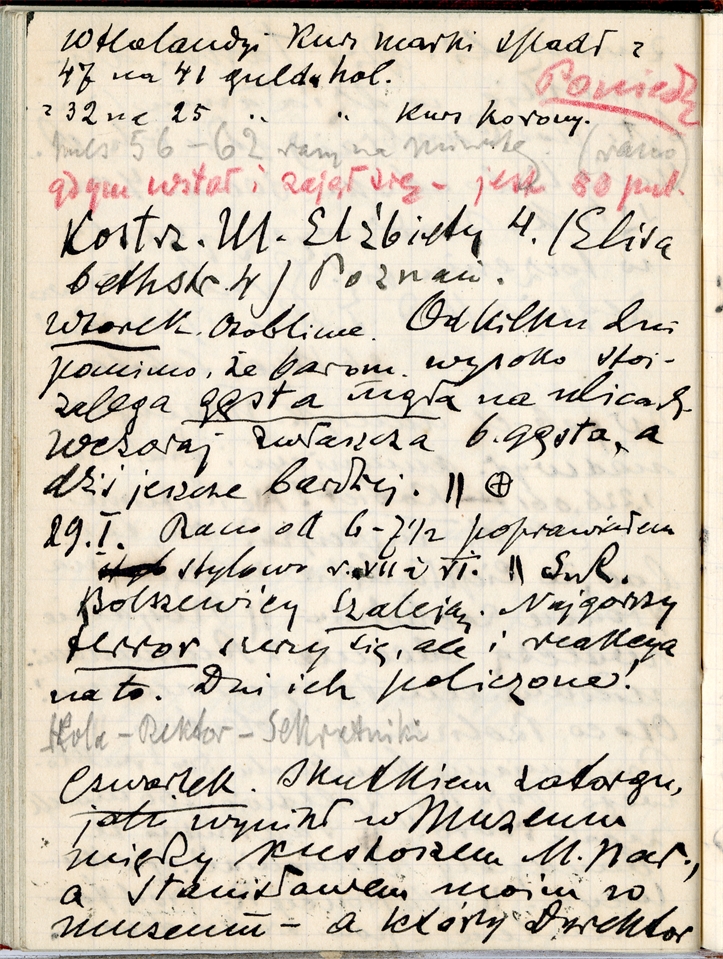 W Holandyi kurs marki spadł z
47 na 41 guld. hol.
Poniedz
z 32 na 25 „ „ kurs korony.
Puls 56–62 razy na minutę. (rano)
gdym wstał i zajął się – jest 80 pul.
Kostrz. Ul. Elżbiety 4. (Elisa
bethstr. 4) Poznań.
Wtorek. Osobliwe. Od kilku dni
pomimo, że barom. wysoko stoi –
zalega gęsta mgła na ulicach
wczoraj zwłaszcza b. gęsta, a
dziś jeszcze bardziej. || ⊕
29.I. Rano od 6–7 1/2 poprawiałem
stylowo r. VII i VI. ||
Bolszewicy szaleją. Najgorszy
terror szerzy się, ale i reakcya
na to. Dni ich policzone!
Szkoła – Rektor – Sekretniki
Czwartek. Skutkiem zatargu,
jaki wynikł w Muzeum
między kustoszem M. Nar.,
a Stanisławem moim w
muzeum – a który Dyrektor